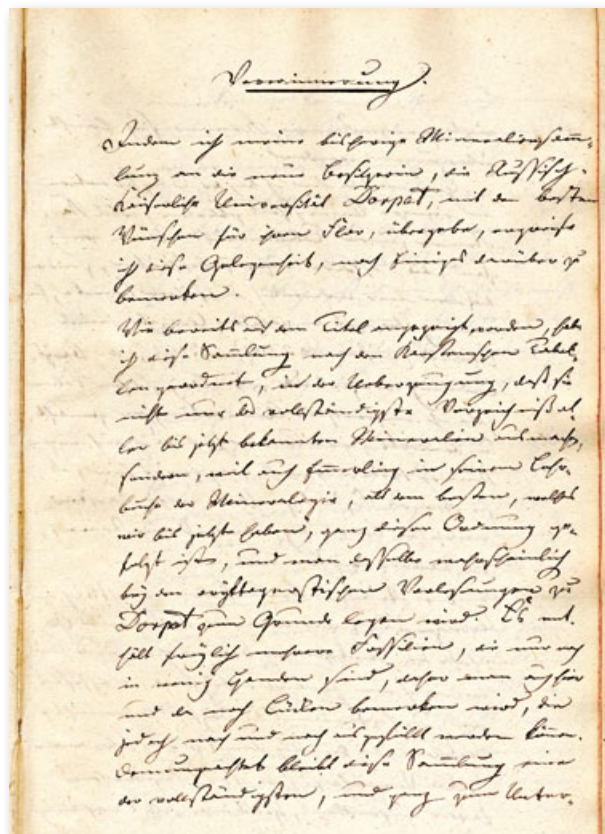 Vorerinnerung.
Indem ich meine bisherige Mineraliensamm-
lung an die neue Besitzerin, die Russisch-
Kaiserliche Universität Dorpat, mit den besten
Wünschen für ihren Flor, übergebe, ergreife
ich diese Gelegenheit, noch Einiges darüber zu
bemerken.
Wie bereits auf dem Titel angezeigt worden, habe
ich diese Sammlung nach den Karstenschen Tabel-
len geordnet, in der Ueberzeugung, daß sie
nicht nur das vollständigste Verzeichniß al-
ler bis jetzt bekannten Mineralien ausmachen,
sondern, weil auch Emmerling in seinem Lehr-
buche der Mineralogie, als dem besten, welches
wir bis jetzt haben, ganz dieser Ordnung ge-
folgt ist, und man dasselbe wahrscheinlich
bey den oryktognostischen Vorlesungen zu
Dorpat zum Grunde legen wird. Es ent-
hält freylich mehrere Fossilien, die nur noch
in wenig Händen sind, daher man auch hier
und da noch Lücken bemerken wird, die
jedoch nach und nach ausgefüllt werden können.
Demungeachtet bleibt diese Sammlung eine
der vollständigsten, und ganz zum Unter-